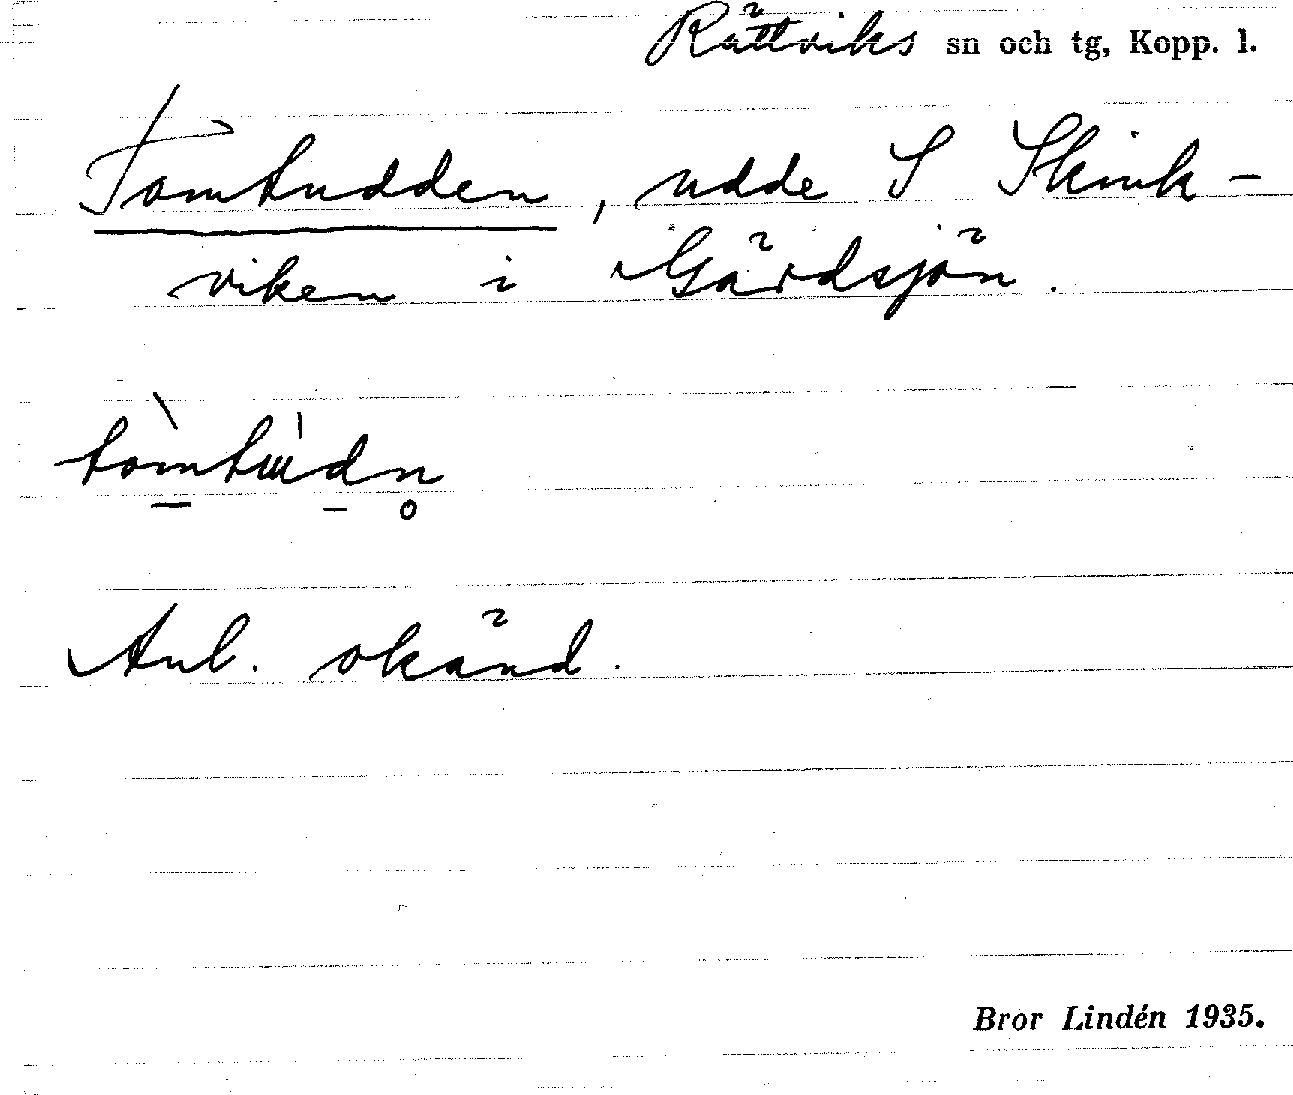 Rättviks sn och tg, Kopp. l.
Tomtudden, udde S Skink-
viken i Gärdsjön.
tòmtúdn̥
Anl. okänd.
Bror Lindén 1935.